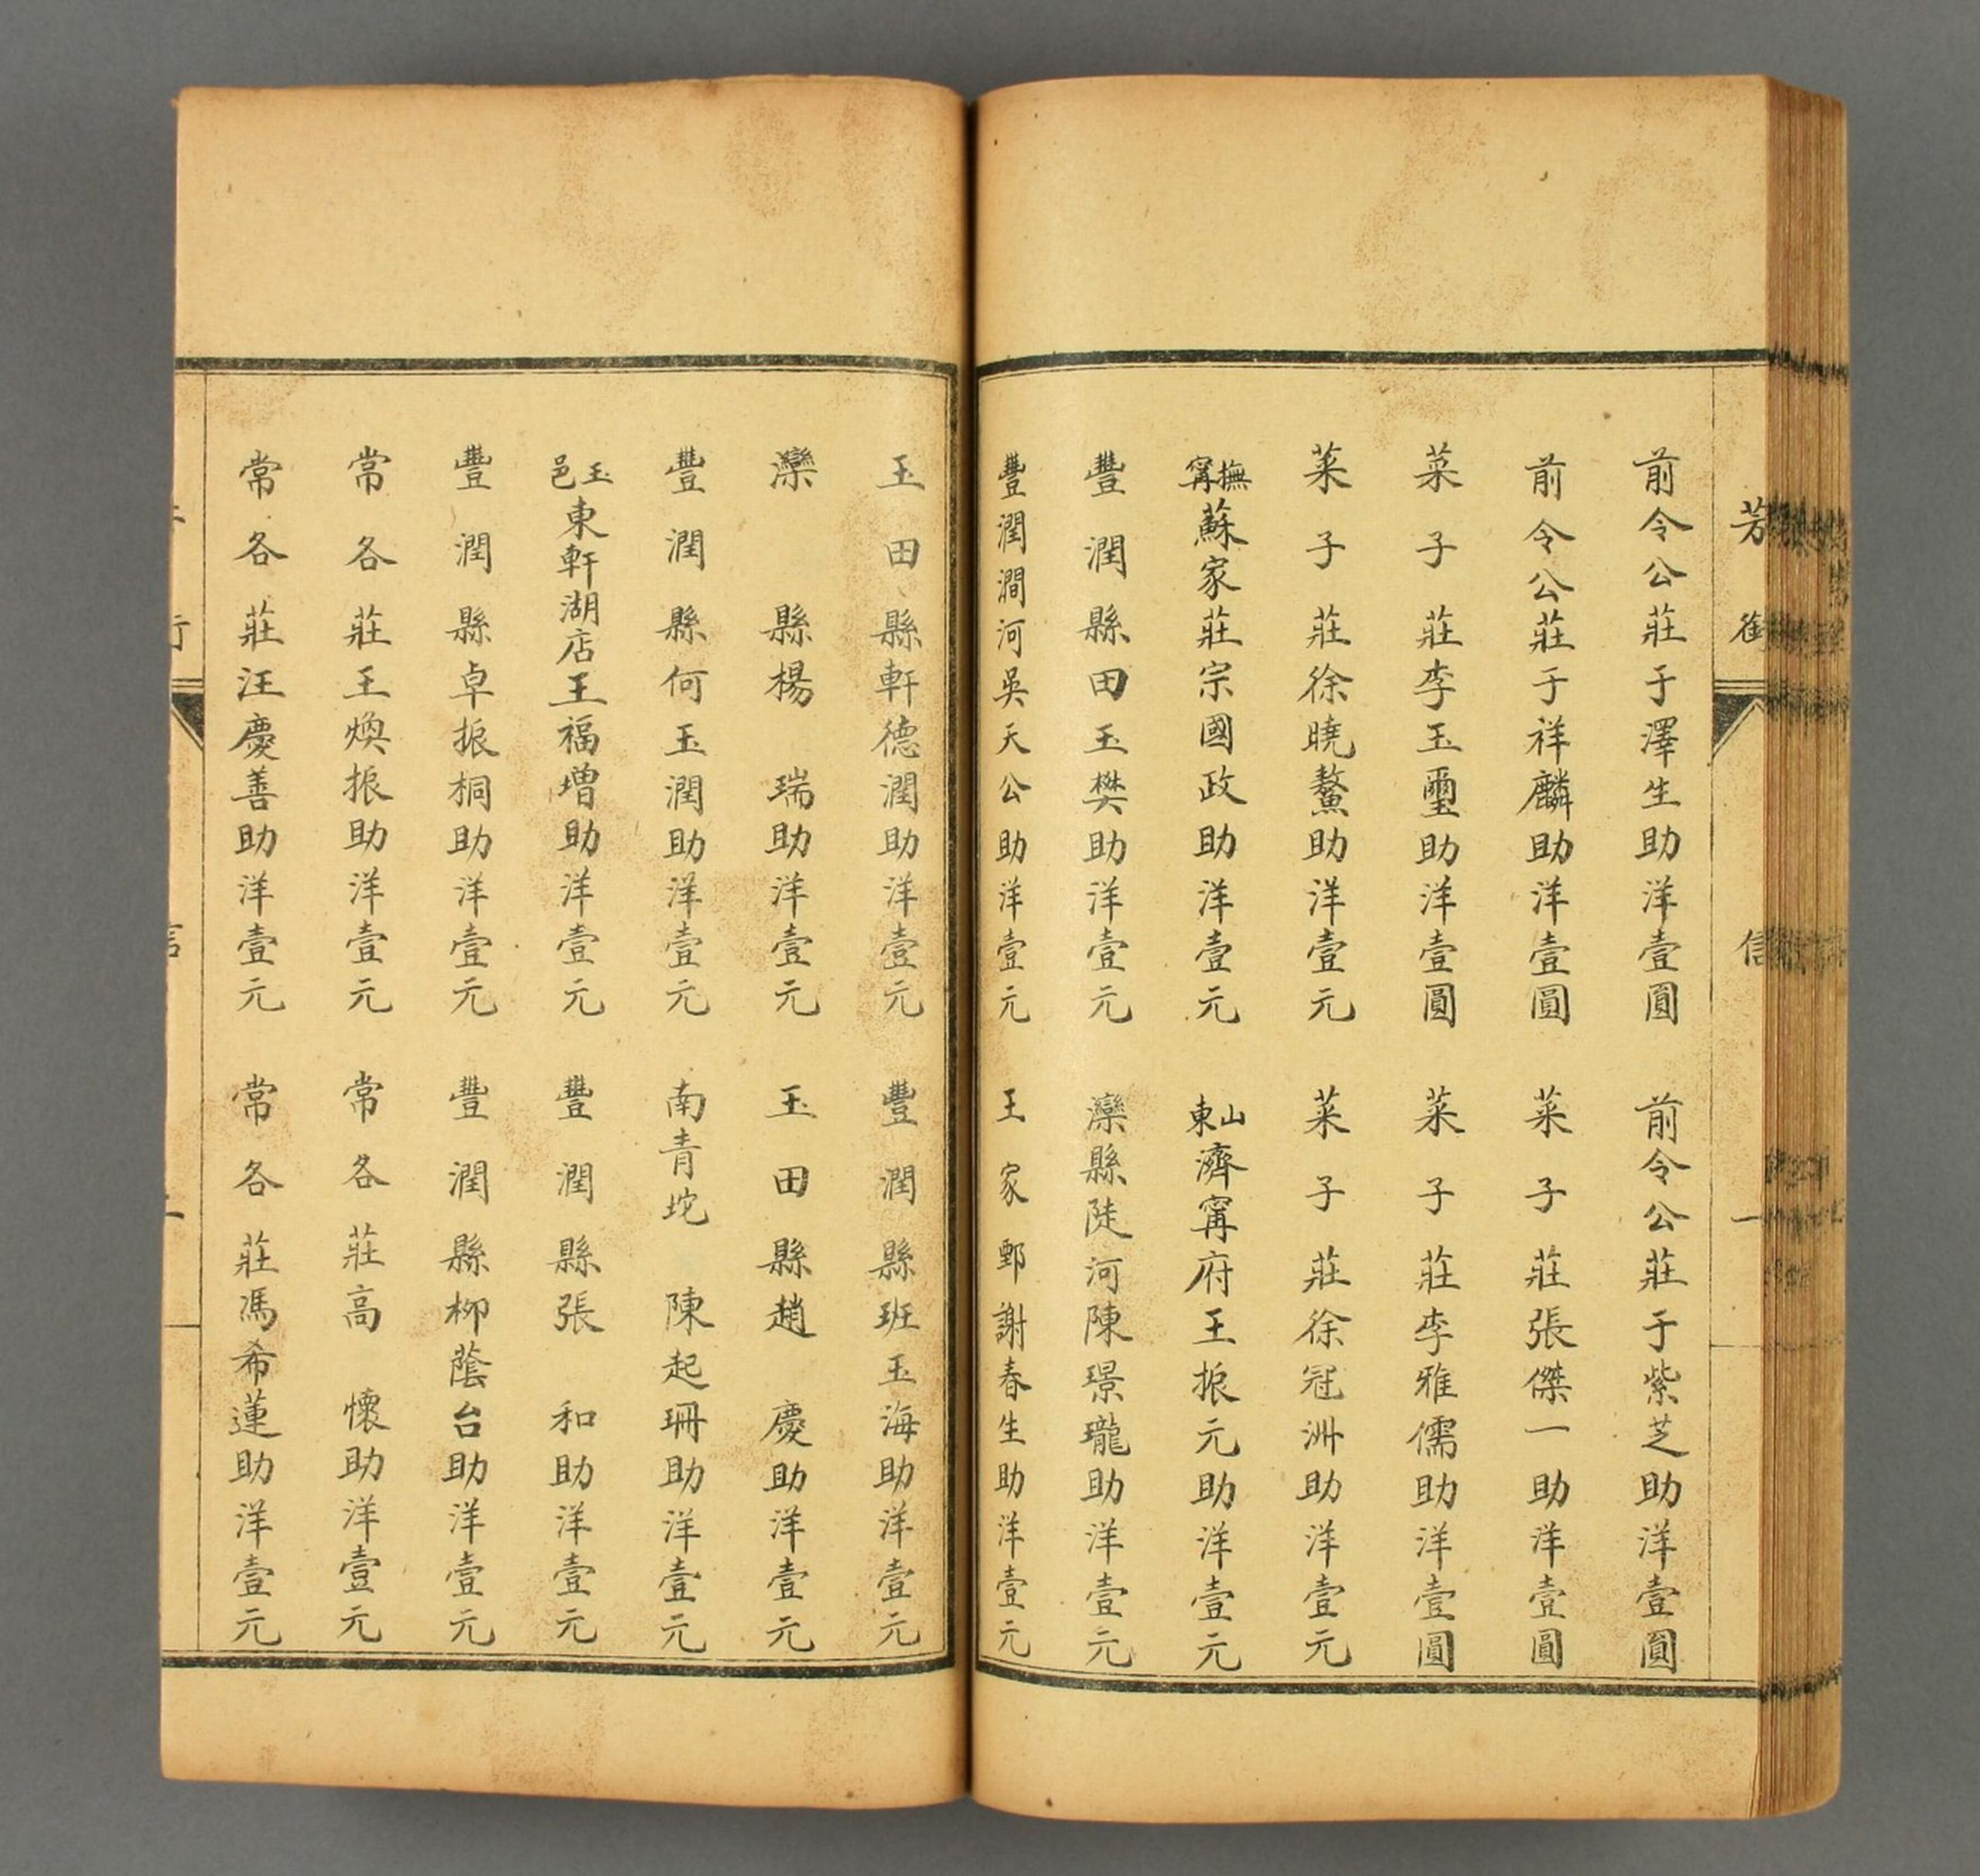 芳銜 信 一
前令公莊于澤生助洋壹圓 前令公莊于紫芝助洋壹圓
前令公莊于祥麟助洋壹圓 菜子莊張傑一助洋壹圓
菜子莊李玉璽助洋壹圓 菜子莊李雅儒助洋壹圓
菜子莊徐曉鰲助洋壹元 菜子莊徐冠洲助洋壹元
撫寗蘇家莊宗國政助洋壹元 山東濟寗府王振元助洋壹元
豐潤縣田玉樊助洋壹元 灤縣陡河陳璟瓏助洋壹元
豐潤澗河吳天公助洋壹元 王家鄄謝春生助洋壹元
玉田縣軒德潤助洋壹元 豐潤縣班玉海助洋壹元
灤縣楊瑞助洋壹元 玉田縣趙慶助洋壹元
豐潤縣何玉潤助洋壹元 南青坨陳起珊助洋壹元
玉邑東軒湖店王福增助洋壹元 豐潤縣張和助洋壹元
豐潤縣卓振桐助洋壹元 豐潤縣柳蔭台助洋壹元
常各莊王煥振助洋壹元 常各莊高懷助洋壹元
常各莊汪慶善助洋壹元 常各莊馮希蓮助洋壹元